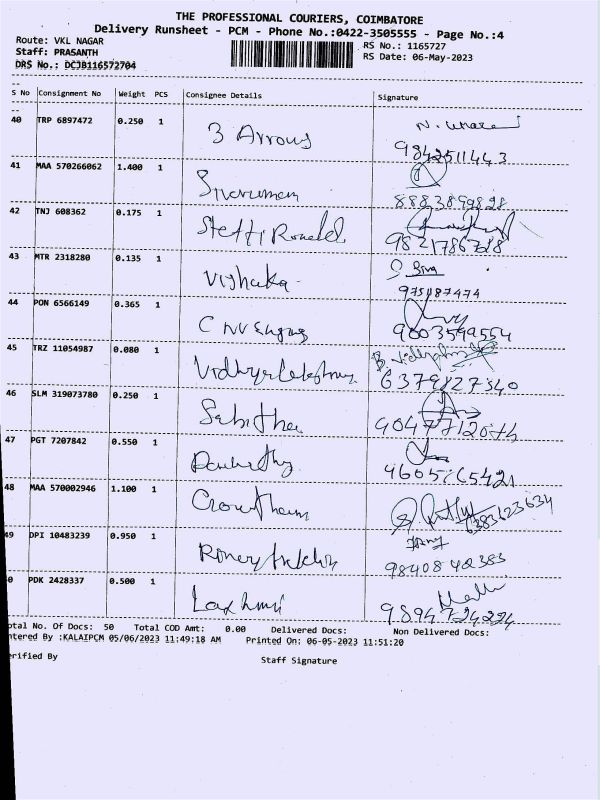 THE PROFESSIONAL COURIERS, COIMBATORE
Delivery Runsheet - PCM - Phone No.:0422-3505555 - Page No.:4
Route: VKL NAGAR RS No.: 1165727
Staff: PRASANTH RS Date: 06-May-2023
DRS No.: DCJB116572704
S No Consignment No Weight PCS Consignee Details Signature
40 TRP 6897472 0.250 1 3 Arrows
9842511443
41 MAA 570266062 1.400 1 Sivakumar
8883899828
42 TNJ 608362 0.175 1 Steffi Ronald
9821786728
43 MTR 2318280 0.135 1 Vishaka S Siva
975187474
44 PON 6566149 0.365 1
9003599554
45 TRZ 11054987 0.080 1 Vidhyalakshmi
6379827340
46 SLM 319073780 0.250 1 Sabitha
47 PGT 7207842 0.550 1
9605765421
48 MAA 570002946 1.100 1
6383623634
49 DPI 10483239 0.950 1
9840842383
0 PDK 2428337 0.500 1 Laxhmi
9894724224
otal No. Of Docs: 50 Total COD Amt: 0.00 Delivered Docs: Non Delivered Docs:
ntered By :KALAIPCM 05/06/2023 11:49:18 AM Printed On: 06-05-2023 11:51:20
erified By Staff Signature